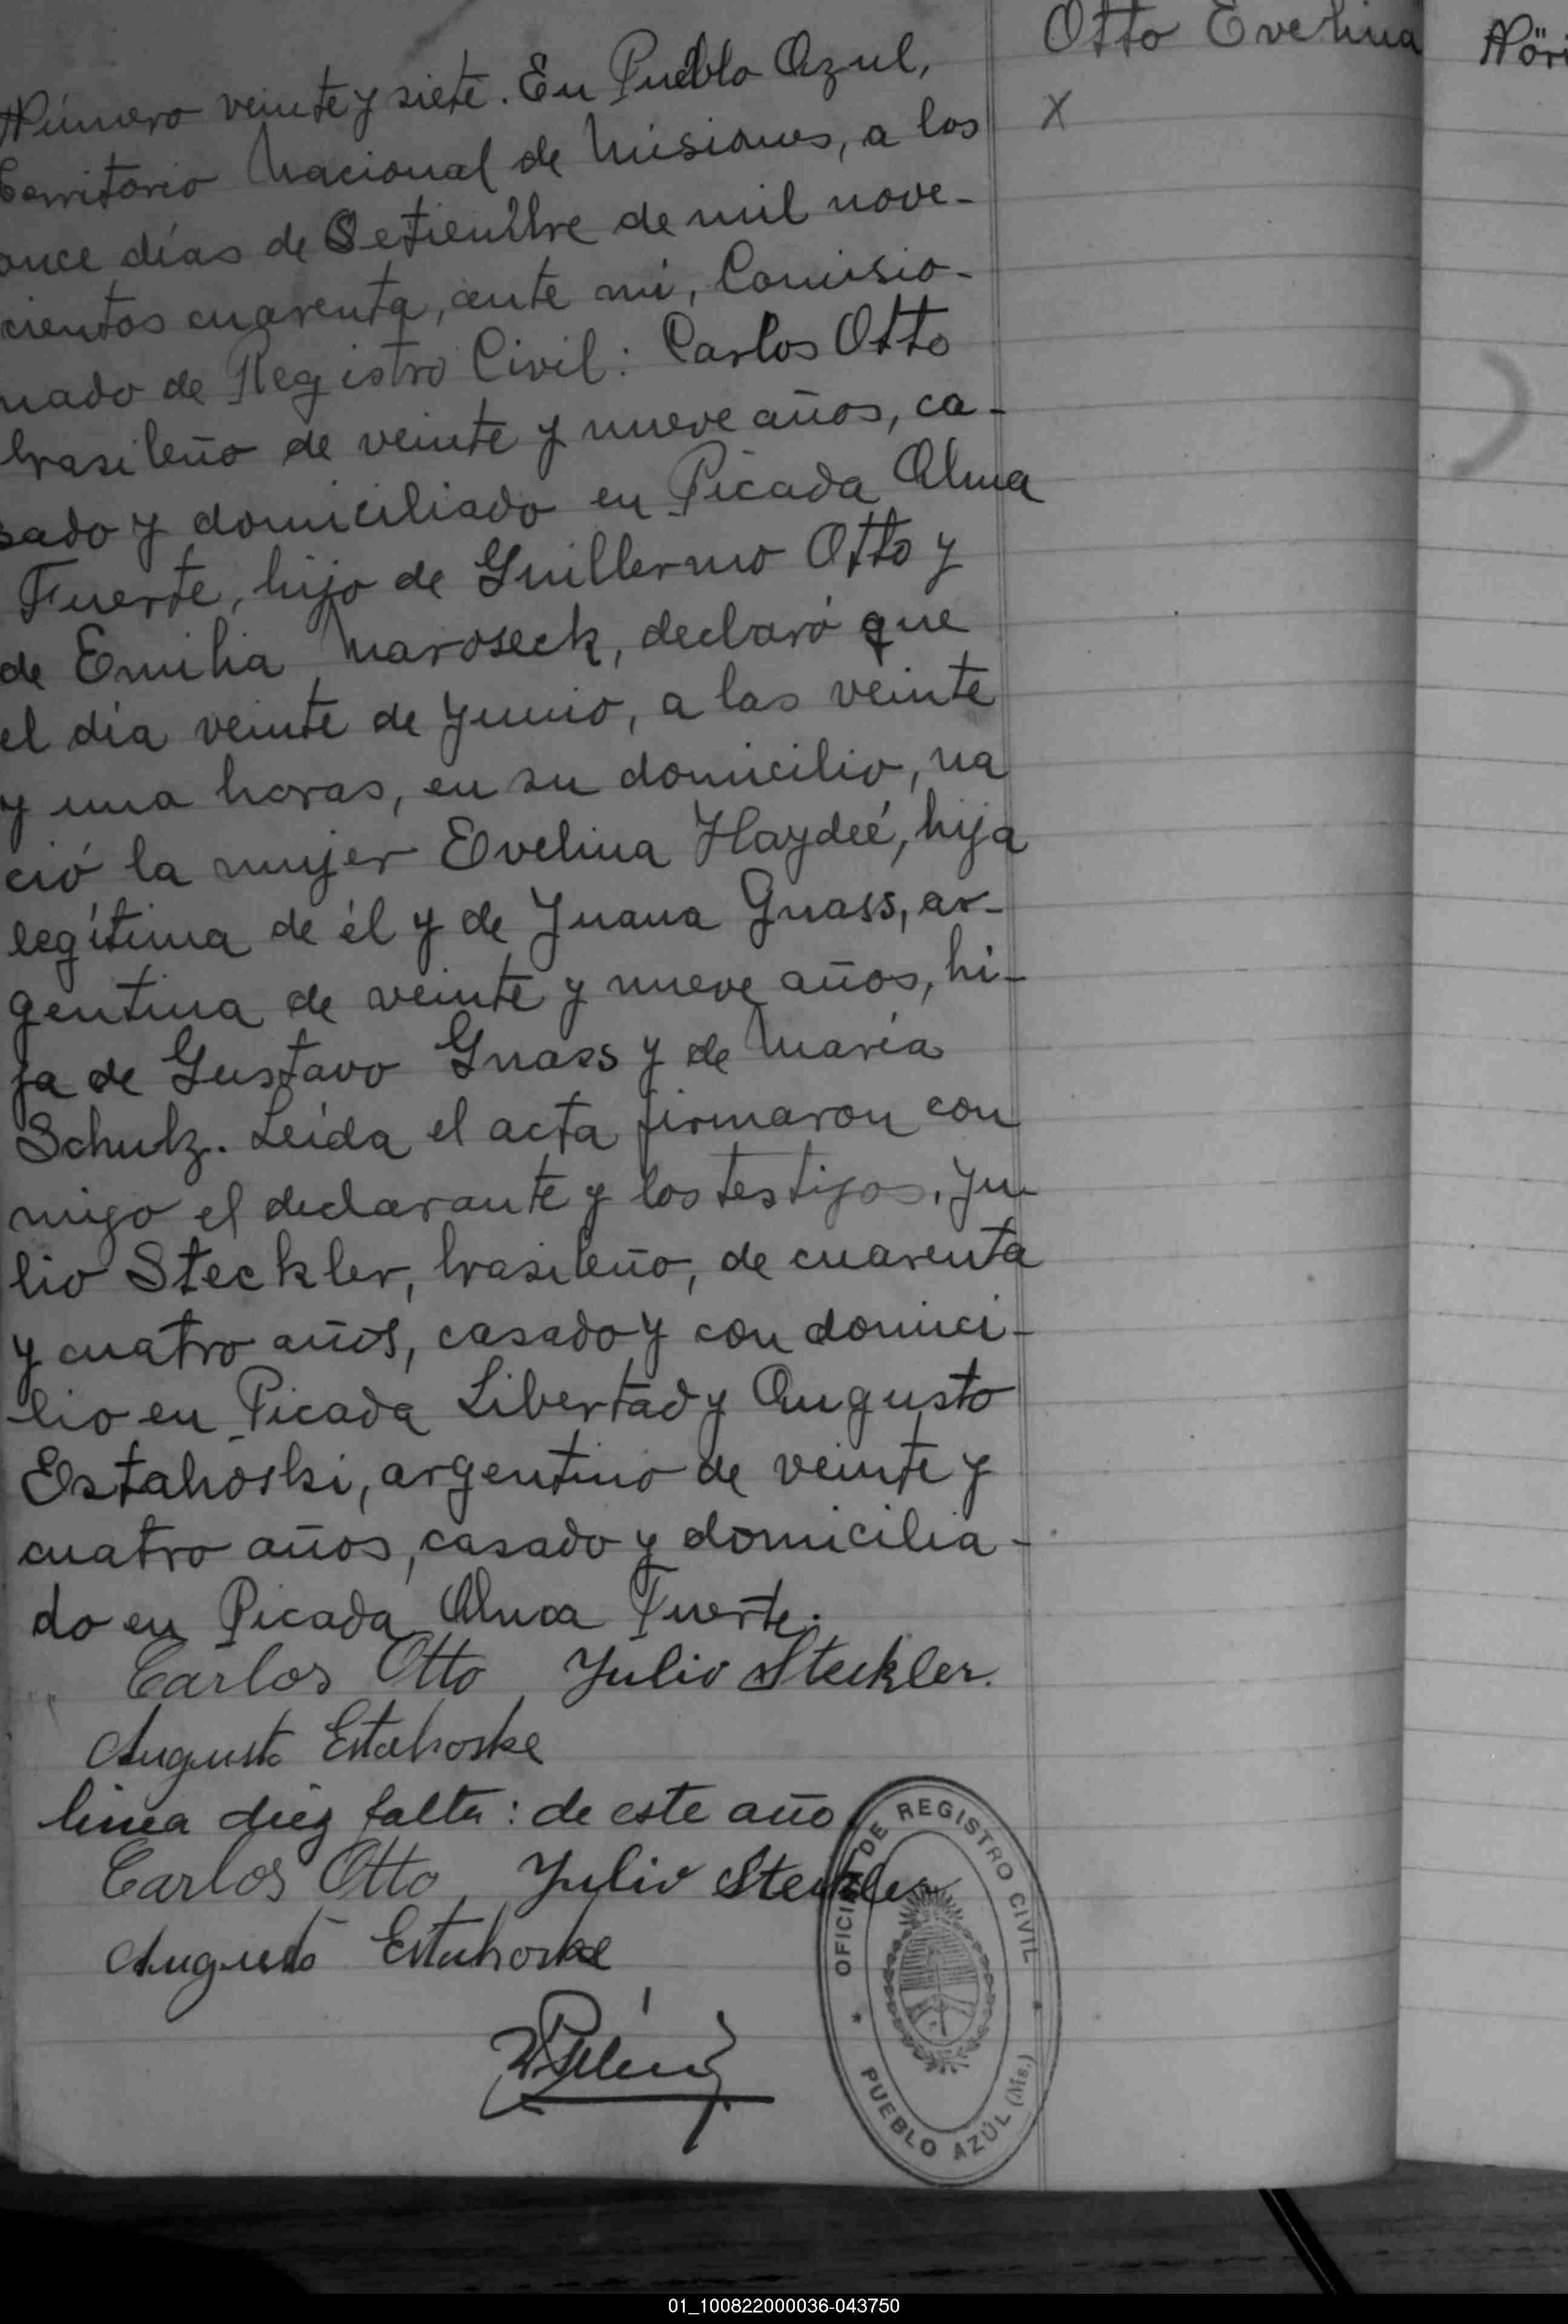 Otto Evelina
Nöri
X
Número veinte y siete. En Pueblo Azul,
Territorio Nacional de Misiones, a los
once días de Setiembre de mil nove-
cientos cuarenta, ante mi, Comisio-
nado de Registro Civil: Carlos Otto
brasileño de veinte y nueve años, ca-
sado y domiciliado en Picada Alma
Fuerte, hijo de Guillermo Otto y
de Emilia Maroseck, declaró que
el día veinte de Junio, a las veinte
y una horas, en su domicilio, na
ció la mujer Evelina Haydeé, hija
legítima de él y de Juana Gnass, ar-
gentina de veinte y nueve años, hi-
ja de Gustavo Gnass y de María
Schulz. Leída el acta firmaron con
migo el declarante y los testigos, Ju-
lio Steckler, brasileño, de cuarenta
y cuatro años, casado y con domici-
lio en Picada Libertad y Augusto
Estahoski, argentino de veinte y
cuatro años, casado y domicilia-
do en Picada Alma Fuerte.
Carlos Otto, Julio Steckler.
Augusto Estahoske
linea diez falta: de este año
Carlos Otto, Julio Steckler
Augusto Estahoske
OFICINA DE REGISTRO CIVIL
* PUEBLO AZÚL (Ms.) *
01_100822000036-043750